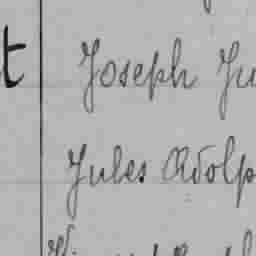 t Joseph Ju
Jules Adolp